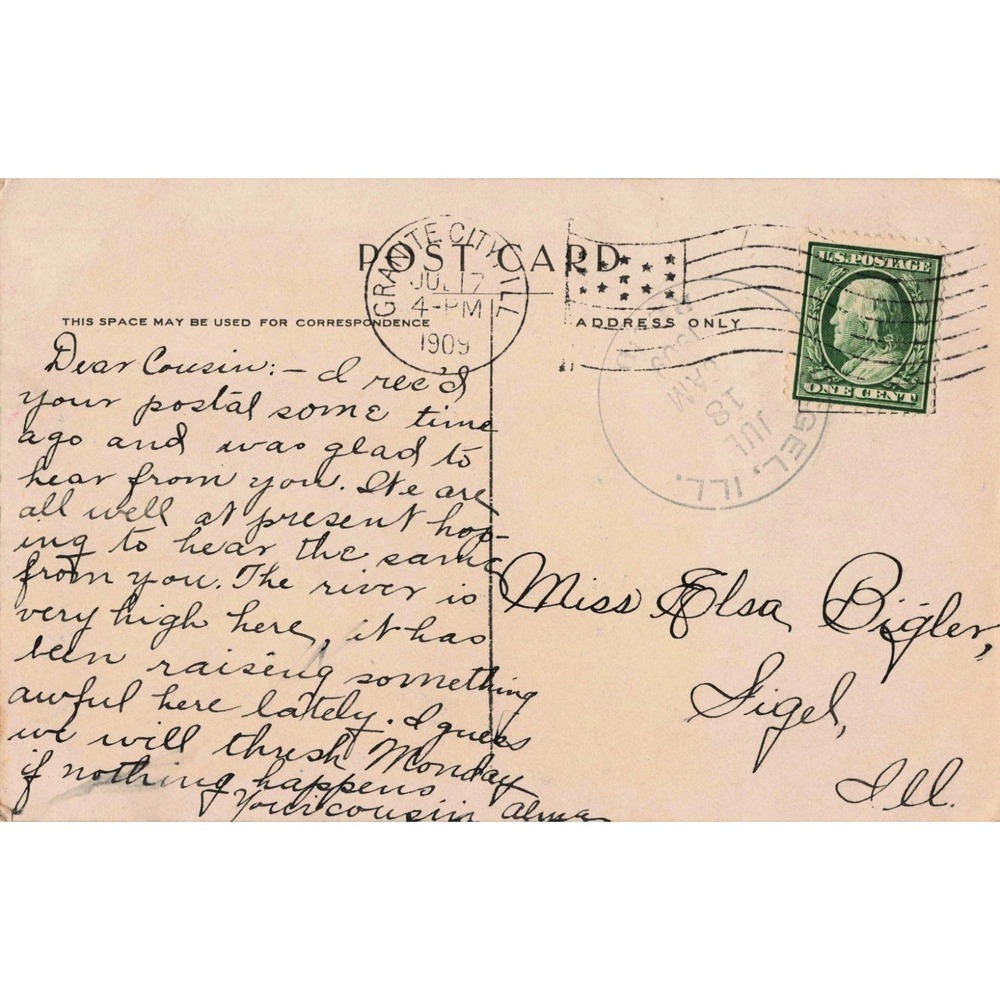 POST CARD
GRANITE CITY, ILL
JUL 17
4-PM
1909
U.S. POSTAGE
ONE CENT
THIS SPACE MAY BE USED FOR CORRESPONDENCE
ADDRESS ONLY
SIGEL, ILL.
JUL
18
8AM
1909
REC'D
Dear Cousin:- I rec'd
your postal some time
ago and was glad to
hear from you. We are
all well at present hop-
ing to hear the same
from you. The river is
very high here, it has
been raising something
awful here lately. I guess
we will thresh Monday
if nothing happens
Your cousin Alma
Miss Elsa Bigler,
Sigel,
Ill.